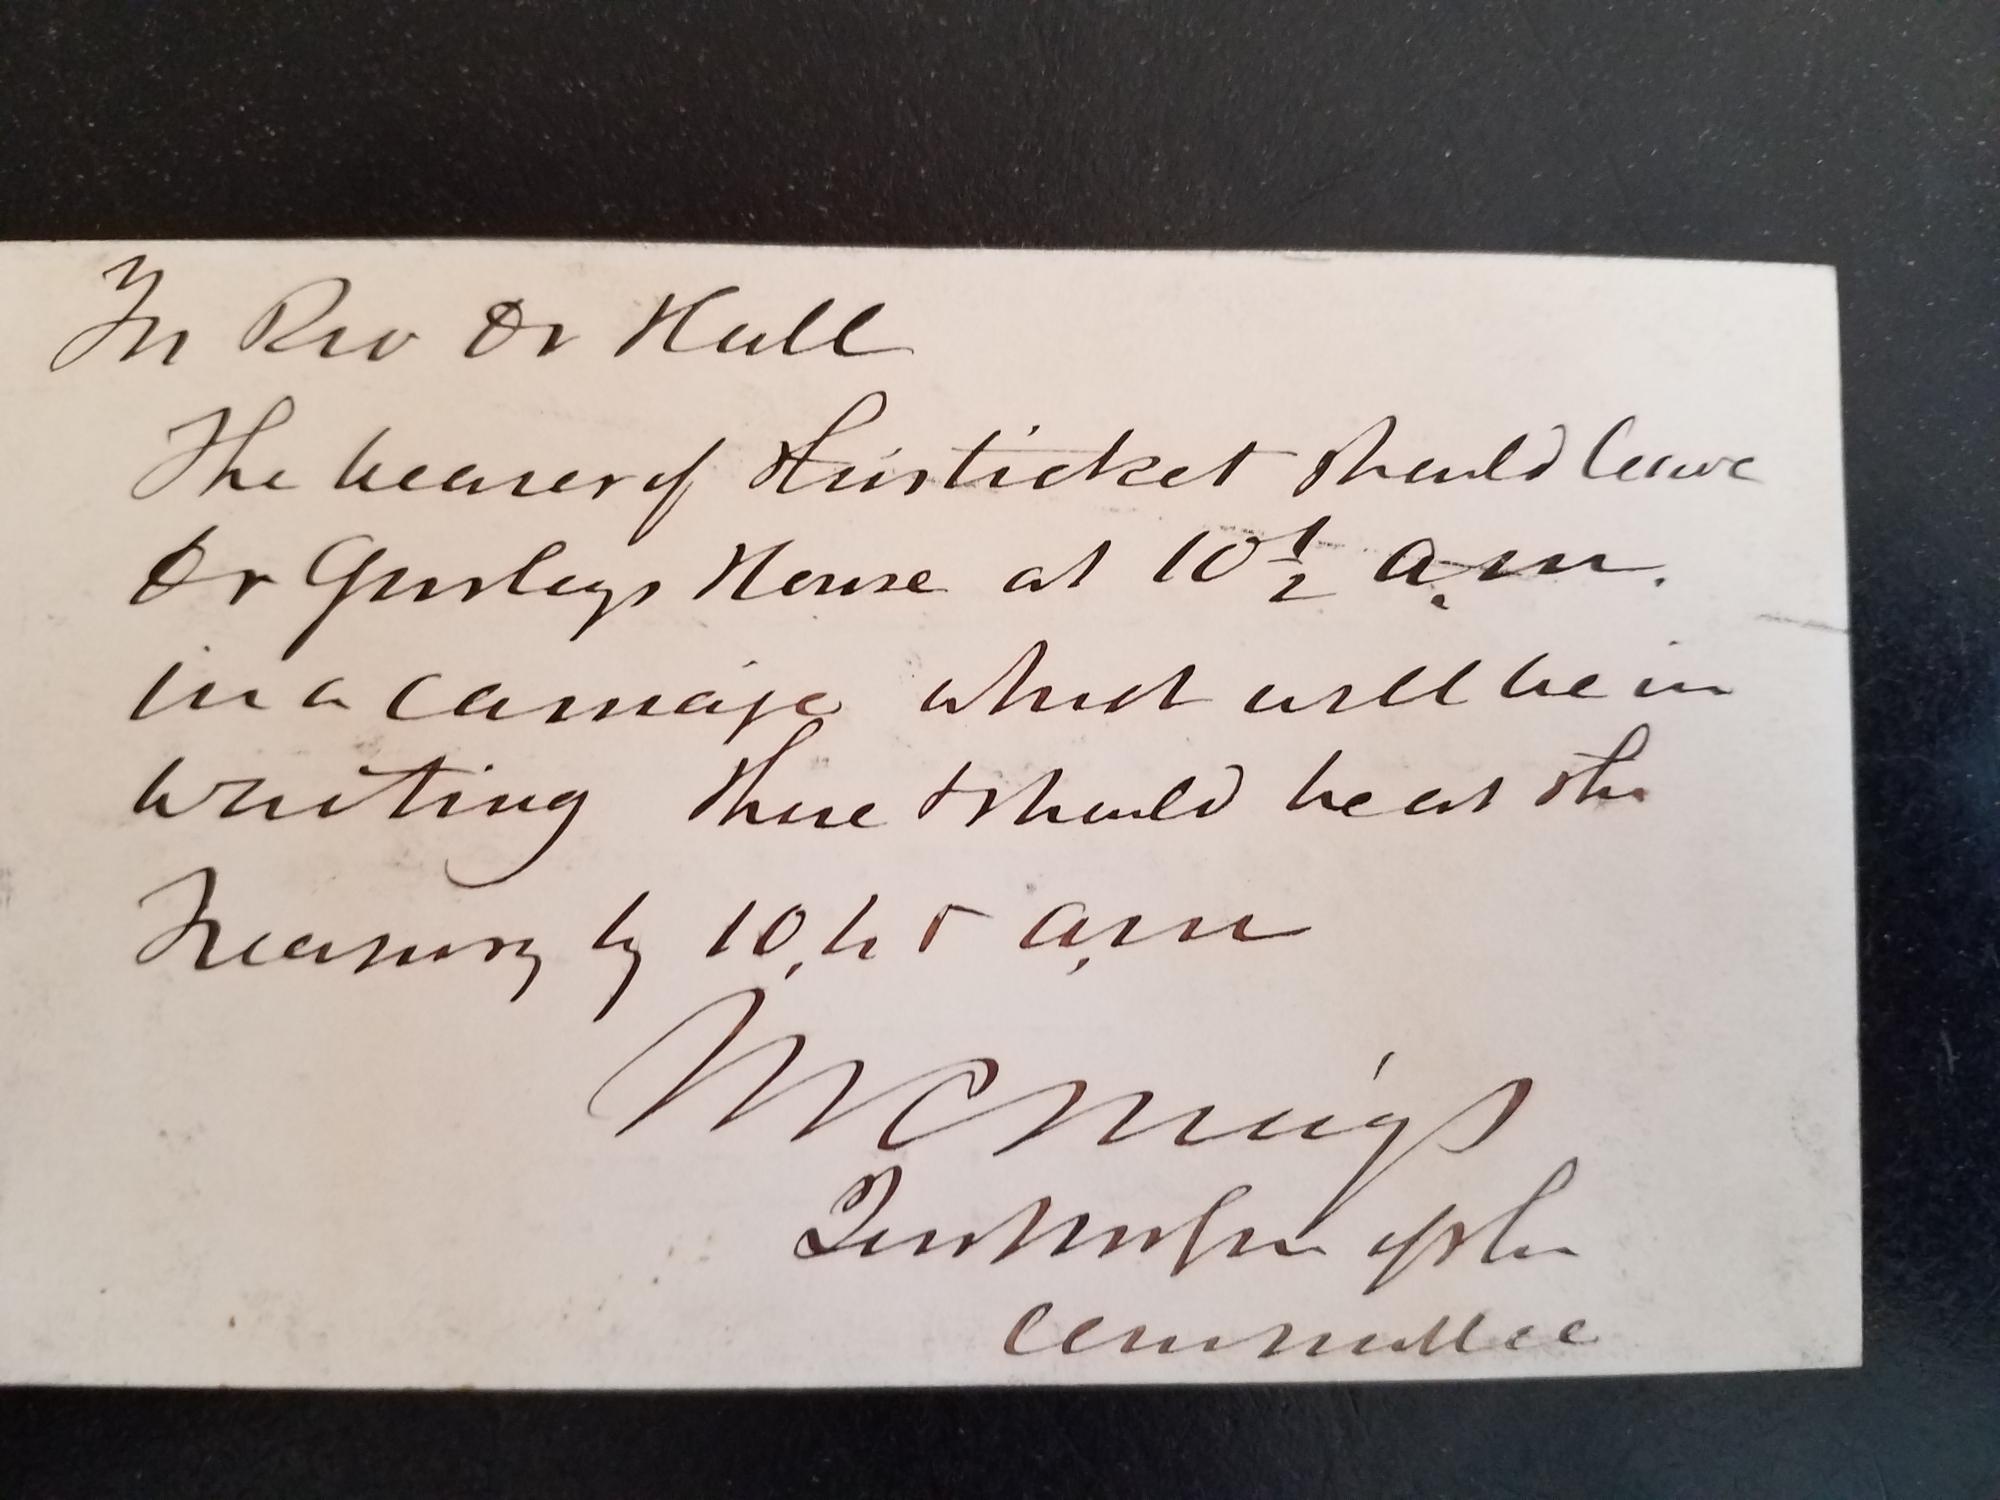 For Rev Dr Hall
The bearer of this ticket should leave
Dr Gurleys House at 10 1/2 a.m.
in a carriage which will be in
waiting there & should be at the
Treasury by 10,45 a,m
M C Meigs
of the
Committee